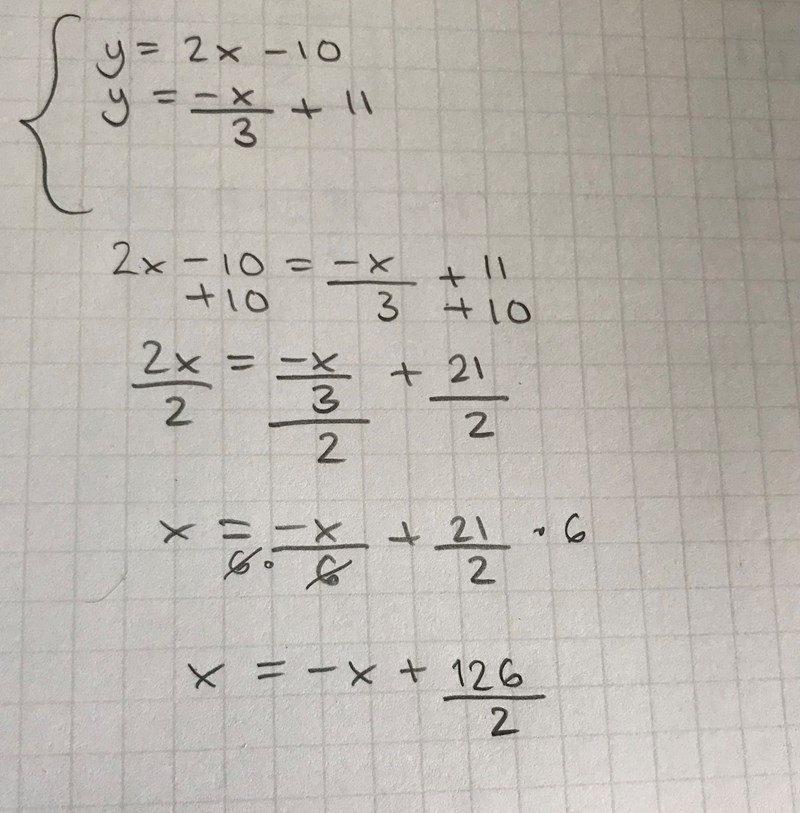 y = 2x - 10
y = -x/3 + 11
2x - 10 = -x/3 + 11
+10 +10
2x/2 = -x/3/2 + 21/2
x = 6 · -x/6 + 21/2 · 6
x = -x + 126/2